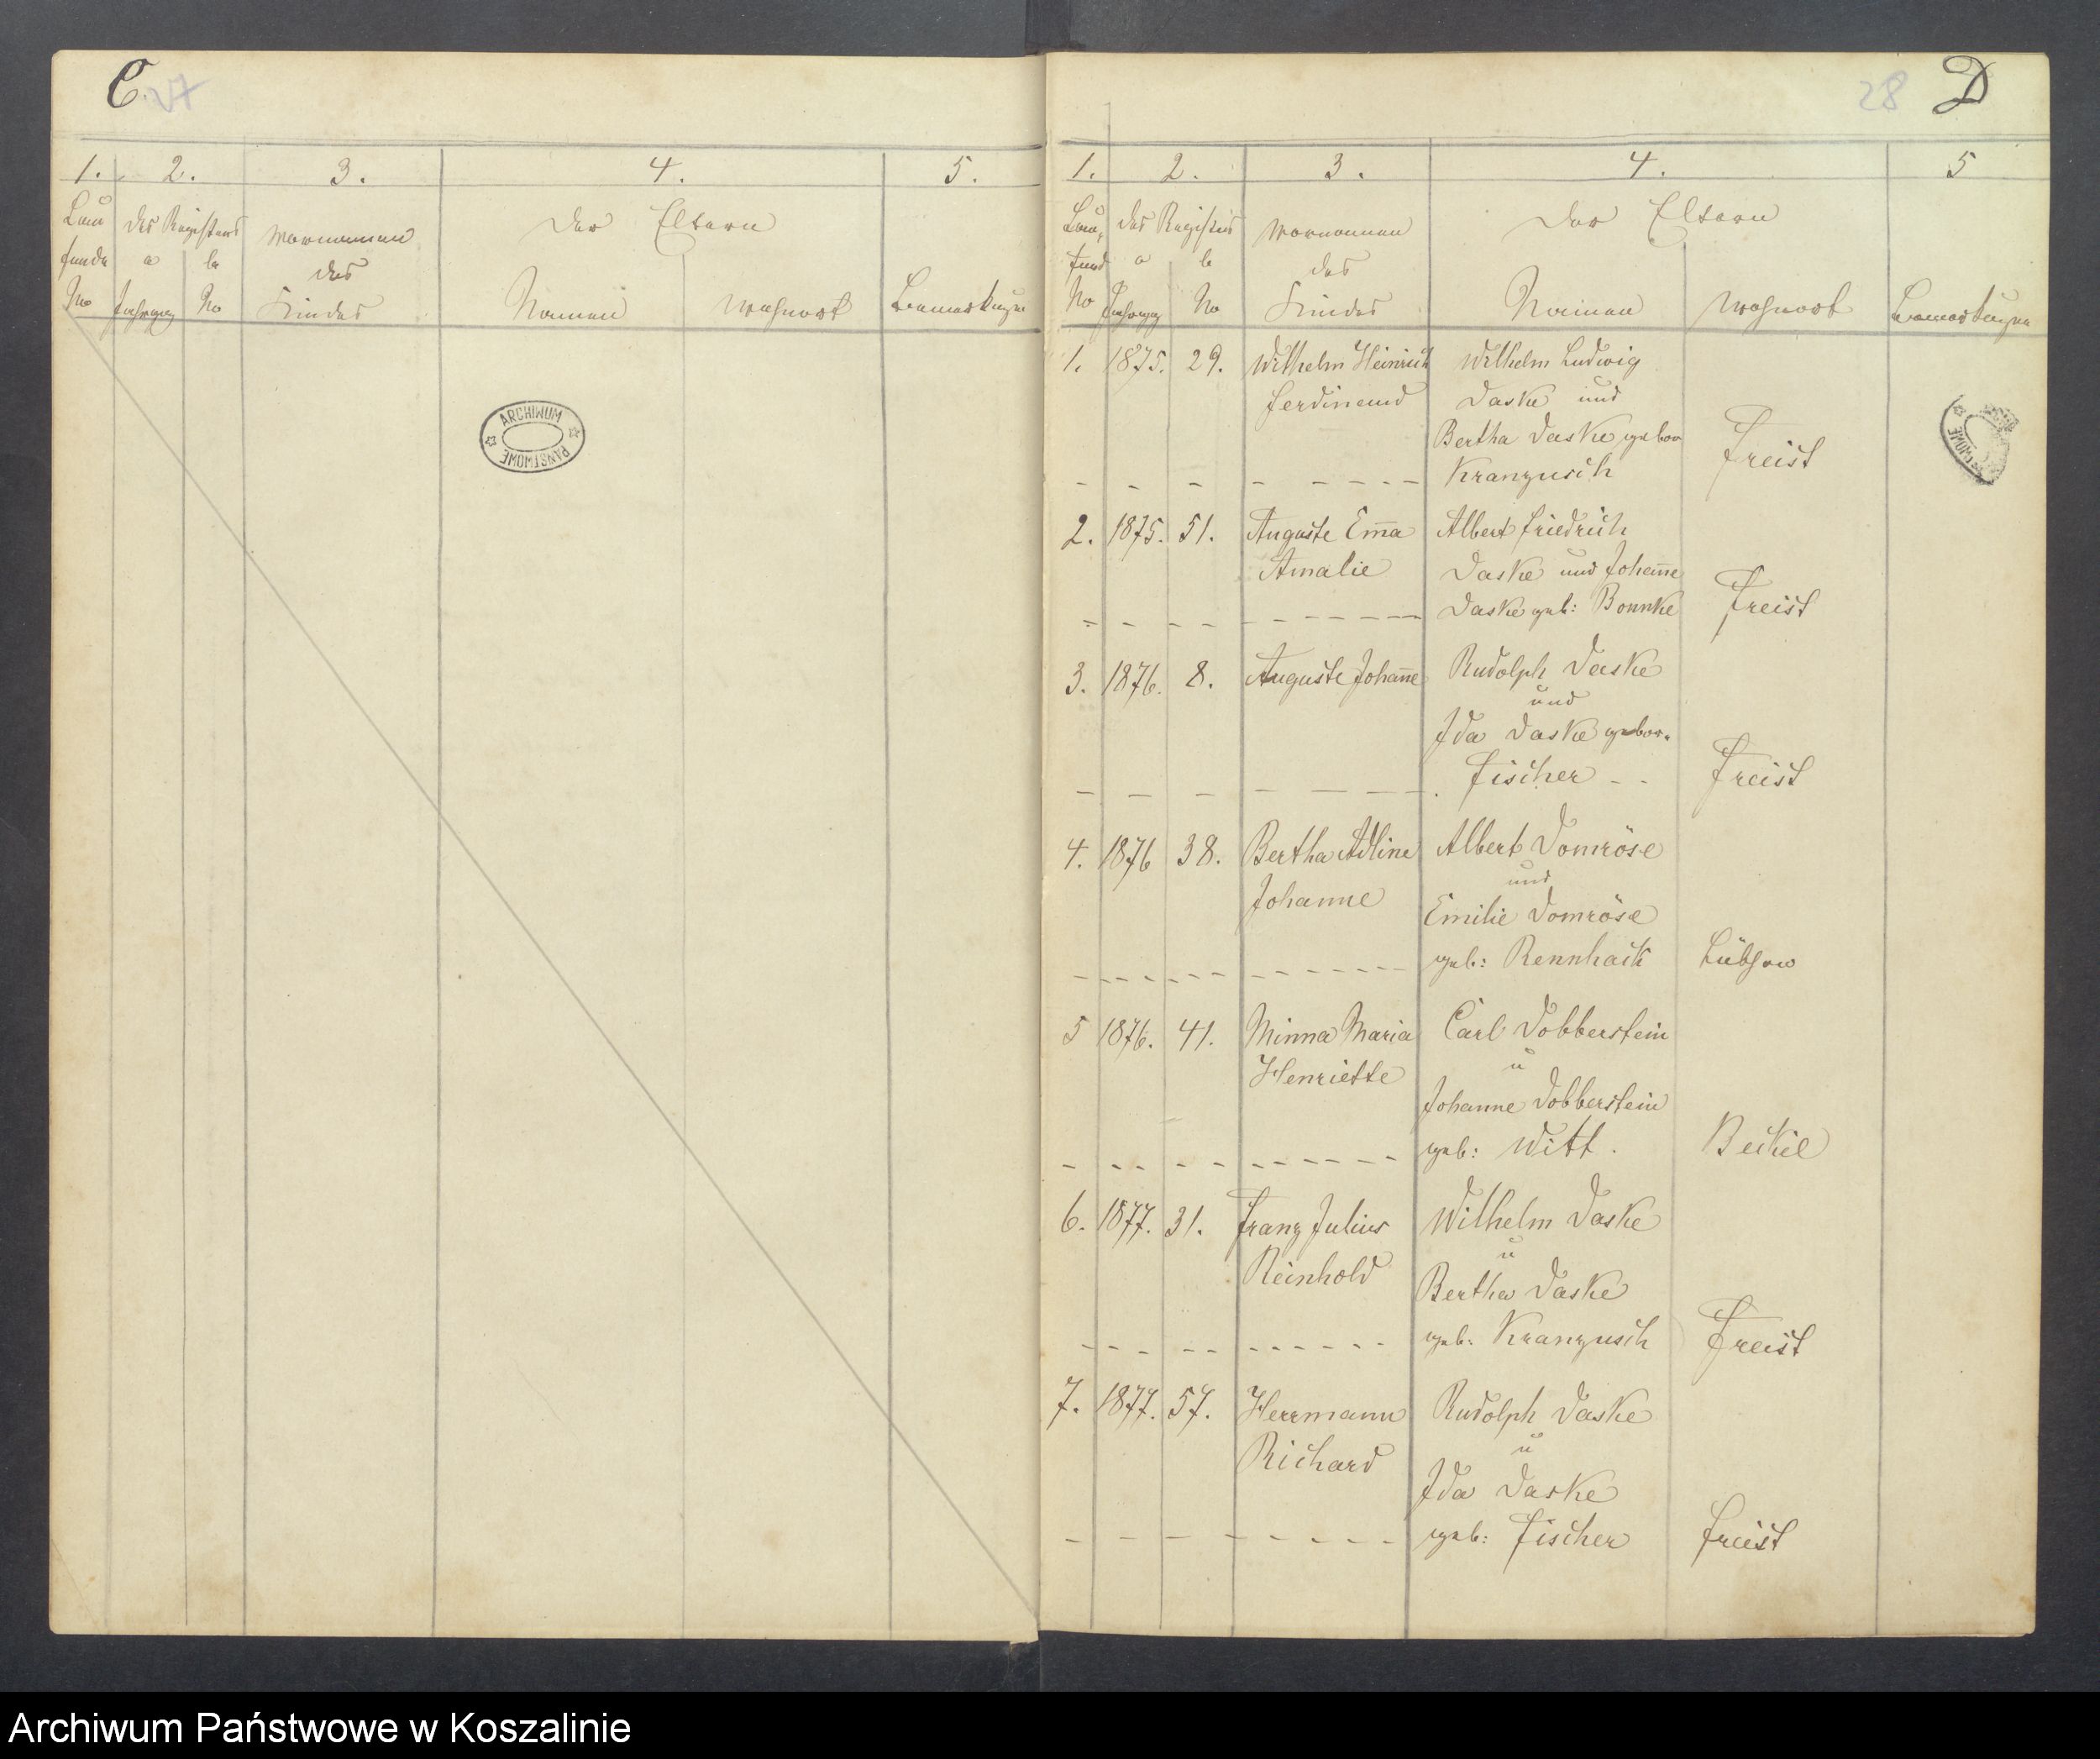 C. 27
1. 2. 3. 4. 5.
Lau des Registers Vornamen Der Eltern
fende a b des
No Jahrgang No Kindes Namen Wohnort Bemerkungen
ARCHIWUM
PAŃSTWOWE
28 D
1. 2. 3. 4. 5
Lau, des Registers Vornamen Der Eltern
fend a b des
No Jahrgang No Kindes Namen Wohnort Bemerkungen
1. 1875. 29. Wilhelm Heinrich Wilhelm Ludwig
Ferdinand Daske und
Bertha Daske gebor
Kranzusch Freist
2. 1875. 51. Auguste Em̅a Albert Friedrich
Amalie Daske und Johan̅e
Daske geb: Bonnke Freist
3. 1876. 8. Auguste Johan̅e Rudolph Daske
und
Ida Daske gebor.
Fischer - - Freist
4. 1876 38. Bertha Adline Albert Domröse
und
Johanne Emilie Domröse
geb: Rennhack Lübzow
5 1876. 41. Minna Maria Carl Dobberstein
u
Henriette
Johanne Dobberstein
geb: Witt. Beckel
6. 1877. 31. Franz Julius Wilhelm Daske
u
Reinhold Bertha Daske
geb: Kranzusch Freist
7. 1877. 57. Herrmann Rudolph Daske
u
Richard Ida Daske
geb: Fischer Freist
Archiwum Państwowe w Koszalinie